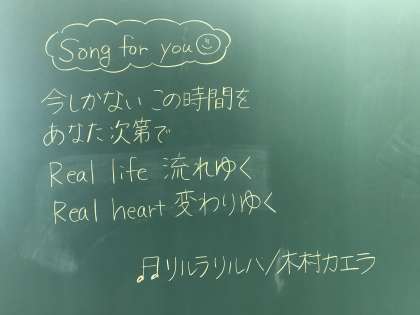 Song for you
今しかない この時間を
あなた次第で
Real life 流れゆく
Real heart 変わりゆく
リルラリルハ/木村カエラ